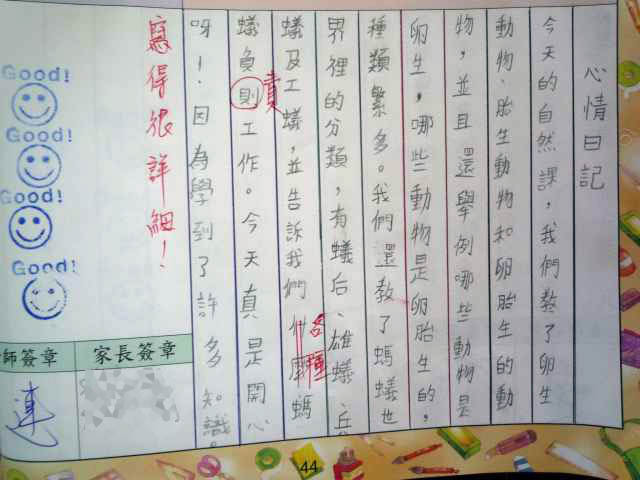 心情日記
今天的自然課，我們教了卵生
動物、胎生動物和卵胎生的動
物，並且還舉例哪些動物是
卵生，哪些動物是卵胎生的，
種類繁多。我們還教了螞蟻世
界裡的分類，有蟻后、雄蟻、兵
蟻及工蟻，並告訴我們什麼螞
各種
蟻負則工作。今天真是開心
責
呀！因為學到了許多知識。
寫得很詳細！
Good!
Good!
Good!
Good!
師簽章
家長簽章
連
44